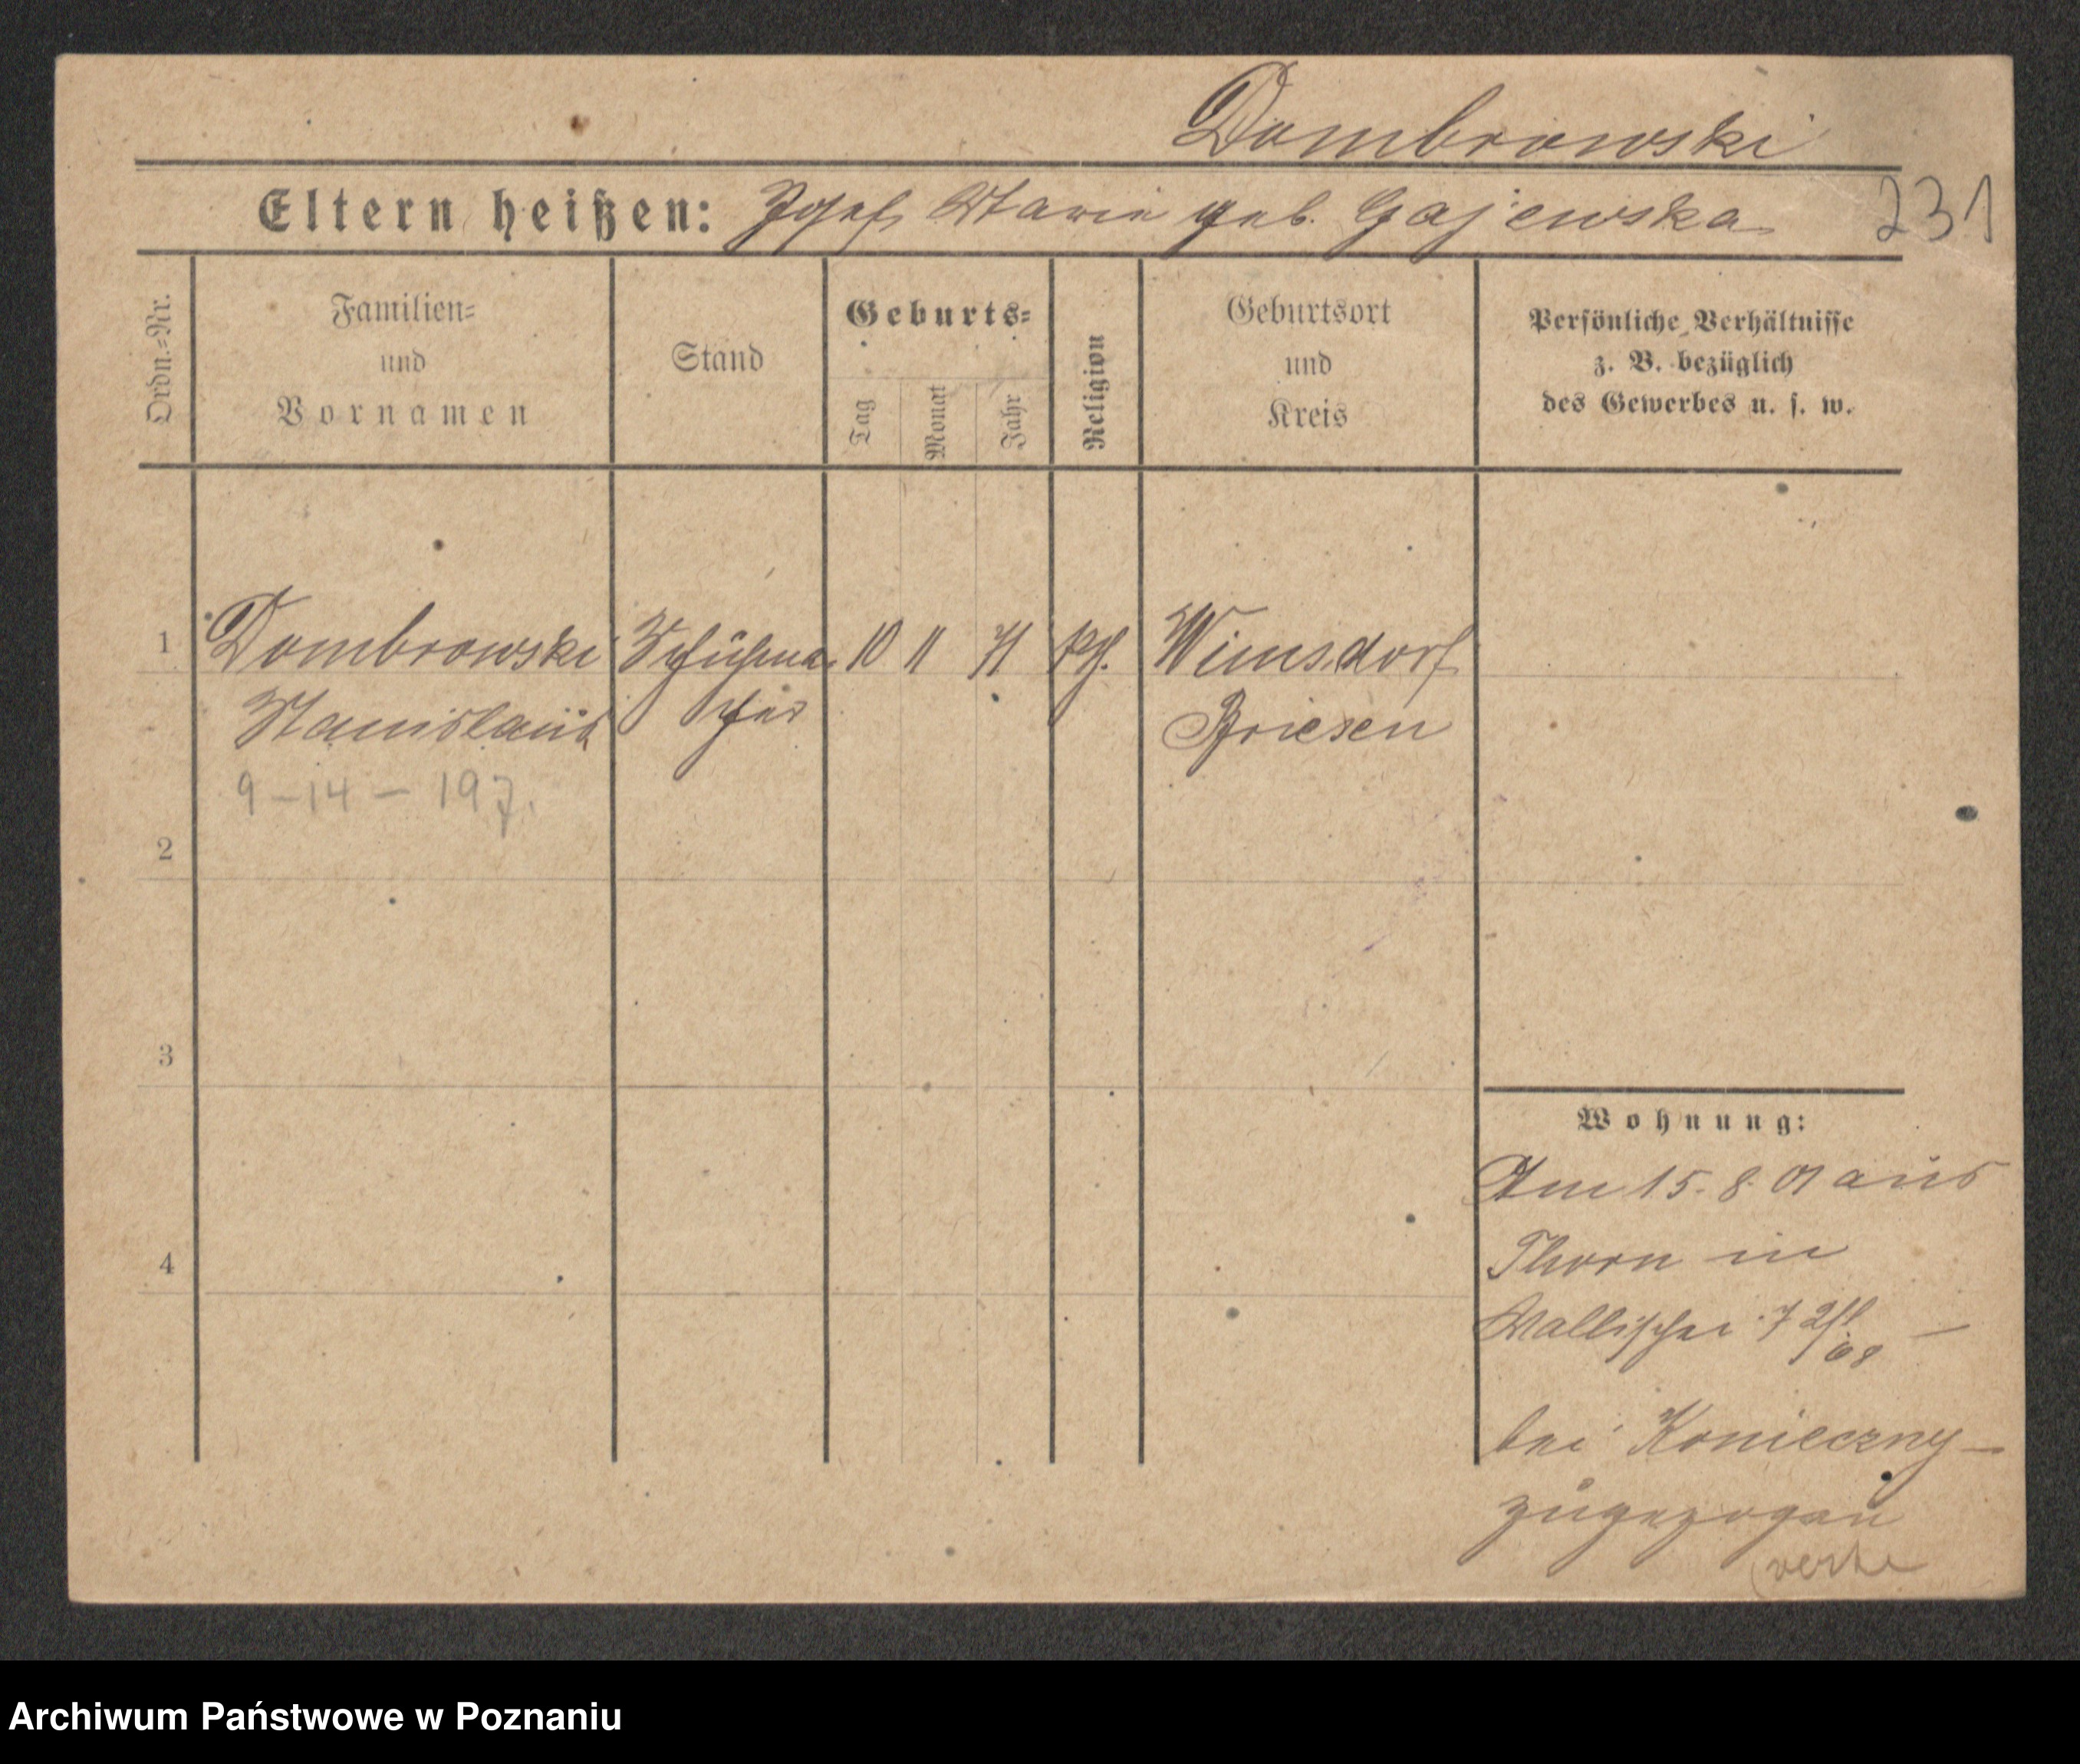 Dombrowski
Eltern heißen: Josef, Marie geb. Gajewska
231
Ordn.-Nr.
Familien-
und
Vornamen
Stand
Geburts-
Tag
Monat
Jahr
Religion
Geburtsort
und
Kreis
Persönliche Verhältnisse
z. B. bezüglich
des Gewerbes u. s. w.
1 Dombrowski Schuhma 10 11 71 kth. Wimsdorf
Stanislaus cher Briesen
9-14-197.
2
3
4
Wohnung:
Am 15. 8. 01 aus
Thorn in
Wallischei 7
bei Konieczny -
zugezogen
Archiwum Państwowe w Poznaniu